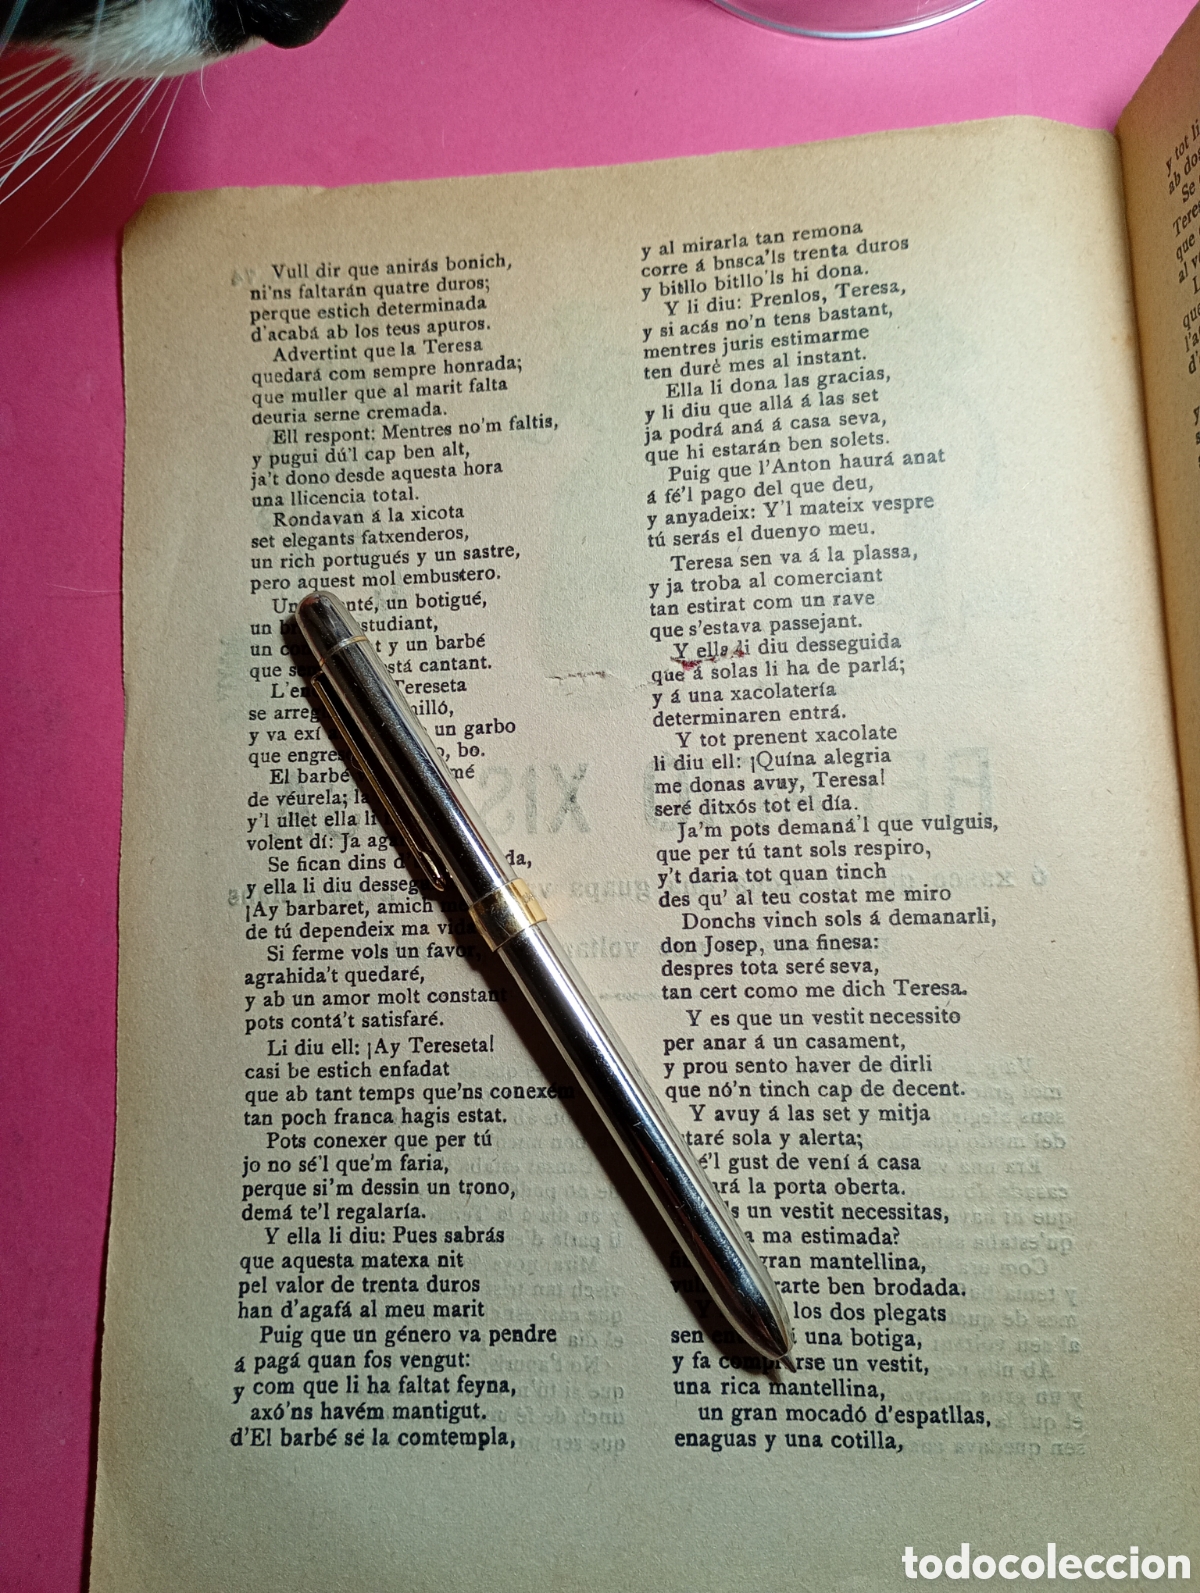 Vull dir que anirás bonich,
ni'ns faltarán quatre duros;
perque estich determinada
d'acabá ab los teus apuros.
Advertint que la Teresa
quedará com sempre honrada;
que muller que al marit falta
deuria serne cremada.
Ell respont: Mentres no'm faltis,
y pugui dú'l cap ben alt,
ja't dono desde aquesta hora
una llicencia total.
Rondavan á la xicota
set elegants fatxenderos,
un rich portugués y un sastre,
pero aquest mol embustero.
un botigué,
un
un y un barbé
que cantant.
Tereseta
se
y va exí un garbo
que bo.
El barbé
de véurela;
y'l ullet ella li
volent dí: Ja
Se fican dins
y ella li diu
¡Ay barbaret, amich
de tú dependeix ma
Si ferme vols un favor,
agrahida't quedaré,
y ab un amor molt constant
pots contá't satisfaré.
Li diu ell: ¡Ay Tereseta!
casi be estich enfadat
que ab tant temps que'ns conexém
tan poch franca hagis estat.
Pots conexer que per tú
jo no sé'l que'm faria,
perque si'm dessin un trono,
demá te'l regalaría.
Y ella li diu: Pues sabrás
que aquesta matexa nit
pel valor de trenta duros
han d'agafá al meu marit
Puig que un género va pendre
á pagá quan fos vengut:
y com que li ha faltat feyna,
axó'ns havém mantigut.
d'El barbé se la comtempla,
y al mirarla tan remona
corre á bnsca'ls trenta duros
y bitllo bitllo'ls hi dona.
Y li diu: Prenlos, Teresa,
y si acás no'n tens bastant,
mentres juris estimarme
ten duré mes al instant.
Ella li dona las gracias,
y li diu que allá á las set
ja podrá aná á casa seva,
que hi estarán ben solets.
Puig que l'Anton haurá anat
á fé'l pago del que deu,
y anyadeix: Y'l mateix vespre
tú serás el duenyo meu.
Teresa sen va á la plassa,
y ja troba al comerciant
tan estirat com un rave
que s'estava passejant.
Y ella li diu desseguida
que á solas li ha de parlá;
y á una xacolatería
determinaren entrá.
Y tot prenent xacolate
li diu ell: ¡Quína alegria
me donas avuy, Teresa!
seré ditxós tot el día.
Ja'm pots demaná'l que vulguis,
que per tú tant sols respiro,
y't daria tot quan tinch
des qu' al teu costat me miro
Donchs vinch sols á demanarli,
don Josep, una finesa:
despres tota seré seva,
tan cert como me dich Teresa.
Y es que un vestit necessito
per anar á un casament,
y prou sento haver de dirli
que nó'n tinch cap de decent.
Y avuy á las set y mitja
sola y alerta;
gust de vení á casa
la porta oberta.
un vestit necessitas,
ma estimada?
gran mantellina,
ben brodada.
Y los dos plegats
sen una botiga,
y fa un vestit,
una rica mantellina,
un gran mocadó d'espatllas,
enaguas y una cotilla,
y tot li
ab dos
Se
que
al
todocoleccion